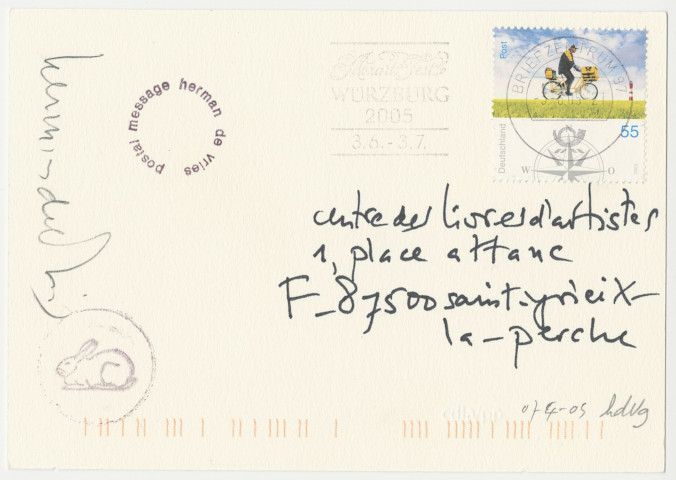 herman de vries
postal message herman de vries
Mozartfest
WÜRZBURG
2005
3.6.-3.7.
Post
BRIEFZENTRUM 97
55
Deutschland
W O
centre des livres d'artistes
1, place attane
F-87500 saint-yrieix-
la-perche
07-4-05 hdvg